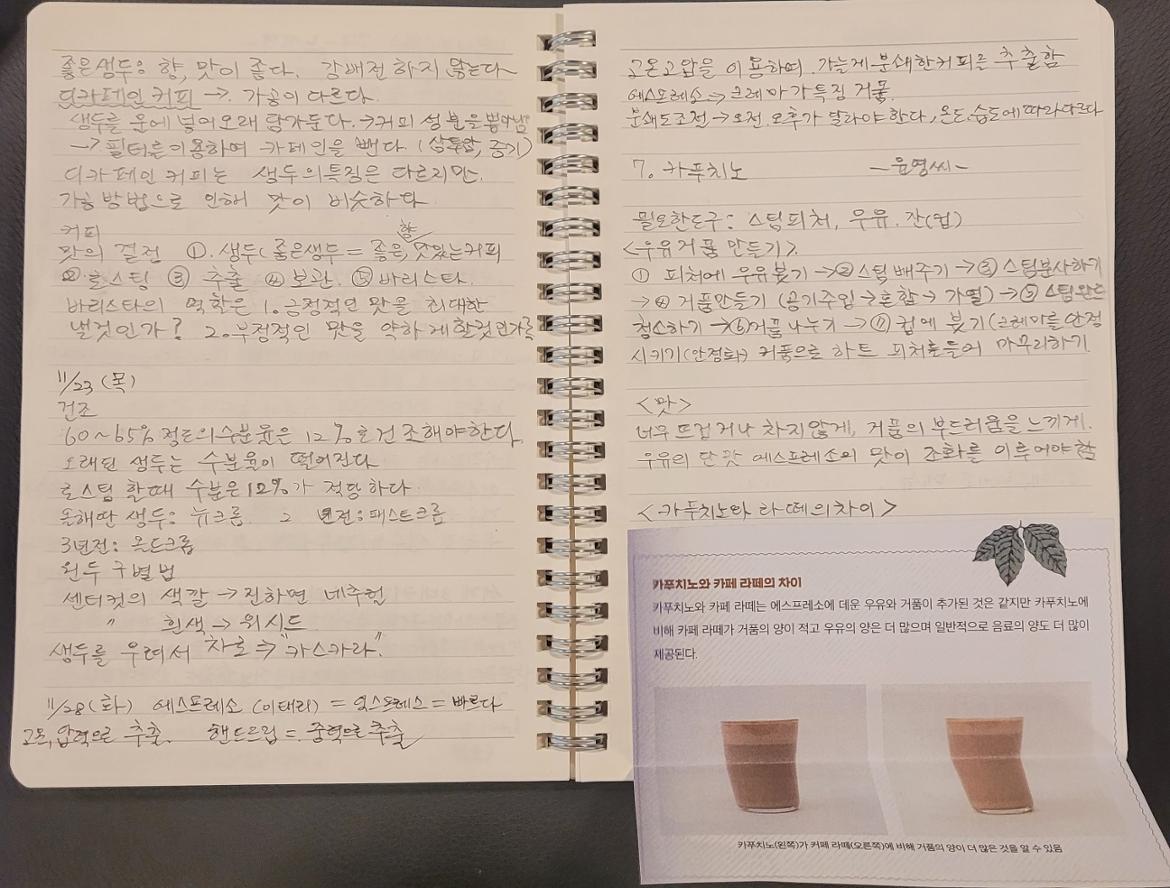 좋은생두: 향, 맛이 좋다. 강배전 하지 않는다
디카페인 커피 → 가공이 다르다.
생두를 물에 넣어오래 담가둔다. → 커피 성분을뽑아냄
→ 필터를이용하여 카페인을 뺀다 (삼투압, 증기)
디카페인 커피는 생두의특징은 다르지만.
가공방법으로 인해 맛이 비슷하다
커피
맛의 결정 ①. 생두(좋은생두 = 좋은, 향 맛있는커피
② 로스팅 ③ 추출 ④ 보관. ⑤ 바리스타.
바리스타의 역할은 1. 긍정적인 맛을 최대한
낼것인가? 2. 부정적인 맛을 약하게할것인가를
11/23 (목)
건조
60~65% 정도의수분율은 12%로건조해야한다.
오래된 생두는 수분율이 떨어진다
로스팅 할때 수분은12%가 적당하다.
올해딴 생두: 뉴크롭. 2 년전: 패스트크롭
3년전: 올드크롭
원두 구별법
센터컷의 색깔 → 진하면 네추럴
" 흰색 → 워시드
생두를 우려서 차로 ⇒ "카스카라."
11/28(화) 에스프레소 (이태리) = 익스프레스 = 빠르다
고온,압력으로 추출. 핸드드립 = 중력으로 추출
고온고압을 이용하여 가늘게분쇄한커피를 추출함
에스프레소 ⇒ 크레마가특징 거품.
분쇄도조절 → 오전.오후가 달라야한다, 온도.습도에따라다르다
7. 카푸치노 -윤영씨-
필요한도구: 스팀피처, 우유. 잔(컵)
<우유거품 만들기>.
① 피처에 우유붓기 → ② 스팀 빼주기 → ③ 스팀분사하기
→ ④ 거품만들기 (공기주입 → 혼합 → 가열) → ⑤ 스팀완드
청소하기 → ⑥거품 나누기 → ⑦ 컵에 붓기(크레마를안정
시키기(안정화) 거품으로 하트 피처를들어 마무리하기.
<맛>
너무뜨겁거나 차지않게, 거품의 부드러움을 느끼게.
우유의 단맛 에스프레소의 맛이 조화를 이루어야함
<카푸치노와 라떼의차이>
카푸치노와 카페 라떼의 차이
카푸치노와 카페 라떼는 에스프레소에 데운 우유와 거품이 추가된 것은 같지만 카푸치노에
비해 카페 라떼가 거품의 양이 적고 우유의 양은 더 많으며 일반적으로 음료의 양도 더 많이
제공된다.
카푸치노(왼쪽)가 카페 라떼(오른쪽)에 비해 거품의 양이 더 많은 것을 알 수 있음